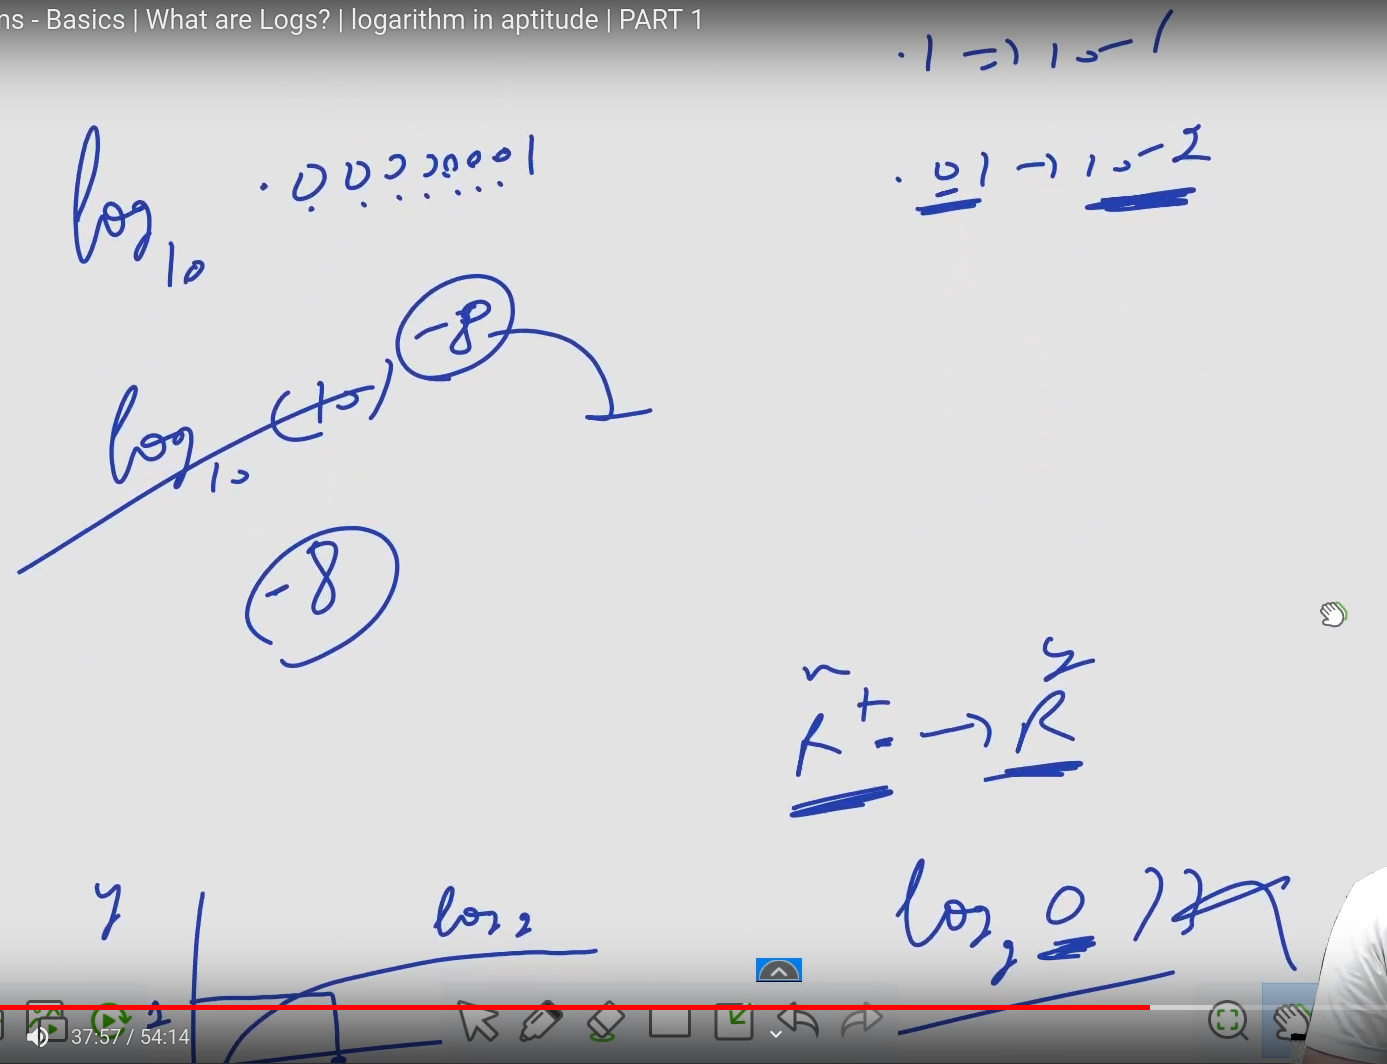 ns - Basics | What are Logs? | logarithm in aptitude | PART 1
.1 => 10-1
log10 .00000001
.01 → 10-2
log10 (10)-8
-8
R+ → R
y
log2
log2 0
37:57 / 54:14